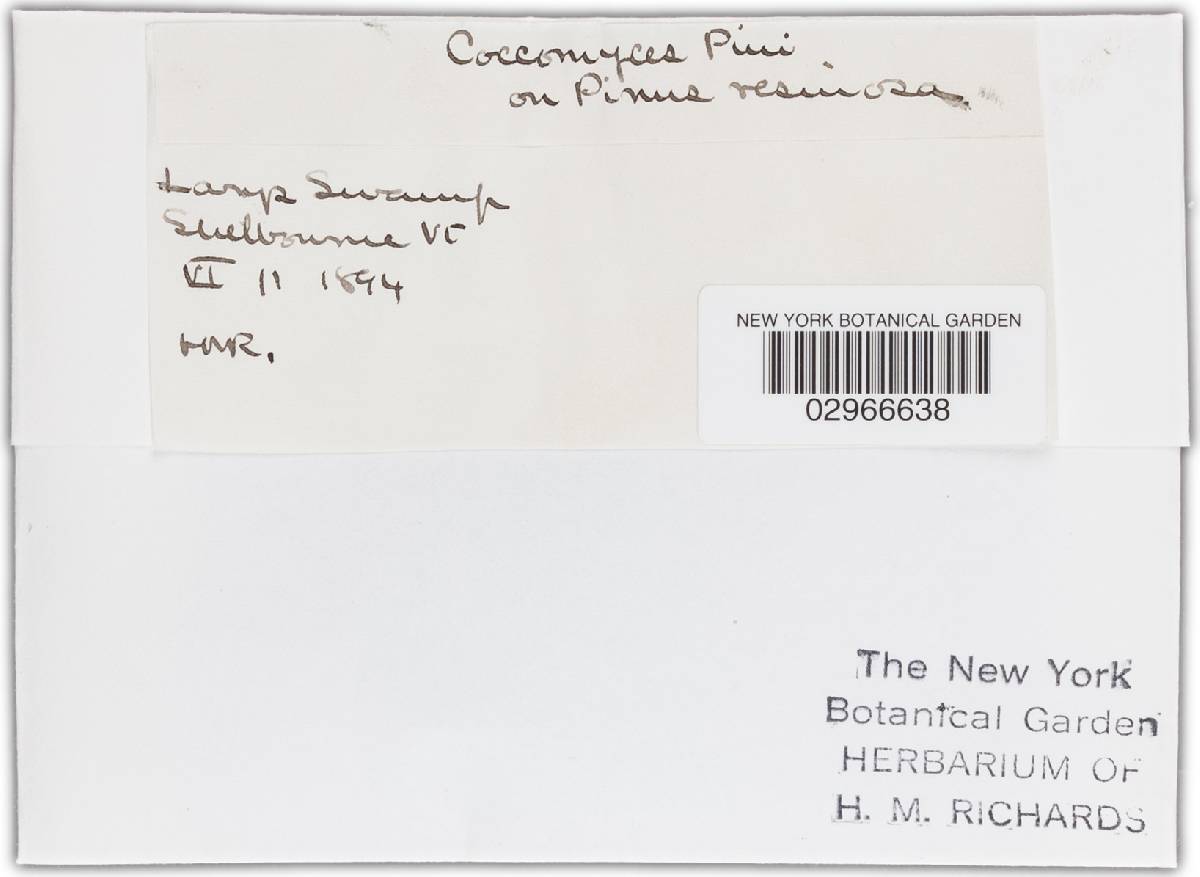 Coccomyces Pini
on Pinus resinosa
Swamp
Shelbourne Vt
VI 11 1894
HMR.
NEW YORK BOTANICAL GARDEN
02966638
The New York
Botanical Garden
HERBARIUM OF
H. M. RICHARDS